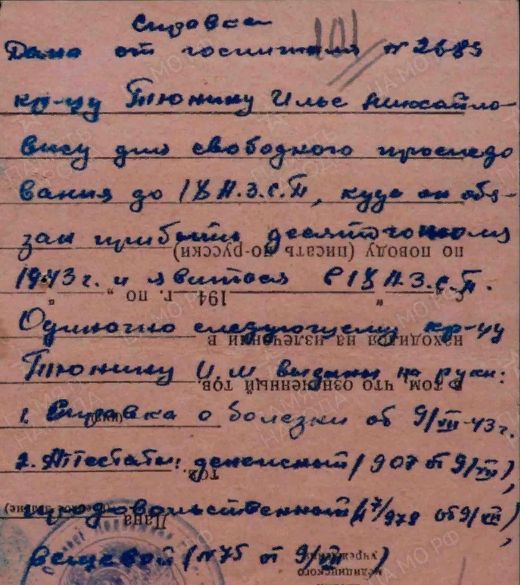 Справка
101
Дана от госпиталя №2689
кр-цу Тюнину Илье Михайло-
вичу для свободного проследо
вания до 18 А.З.С.П, куда он обя-
зан прибыть десятого июля
по поводу (писать по-русски)
1943 г. и явится в 18 А.З.С.П.
194 г. по
Одиночно следующему кр-цу
находился на излечении в
Тюнину И М выданы на руки:
в том что означенный тов
1. Справка о болезни от 9/VII-43 г.
2. Аттестаты: денежный (907 от 9/VII),
тов.
продовольственный (№7/978 от 9/VII),
Дана
вещевой (№75 от 9/VII)
медицинского
учреждения